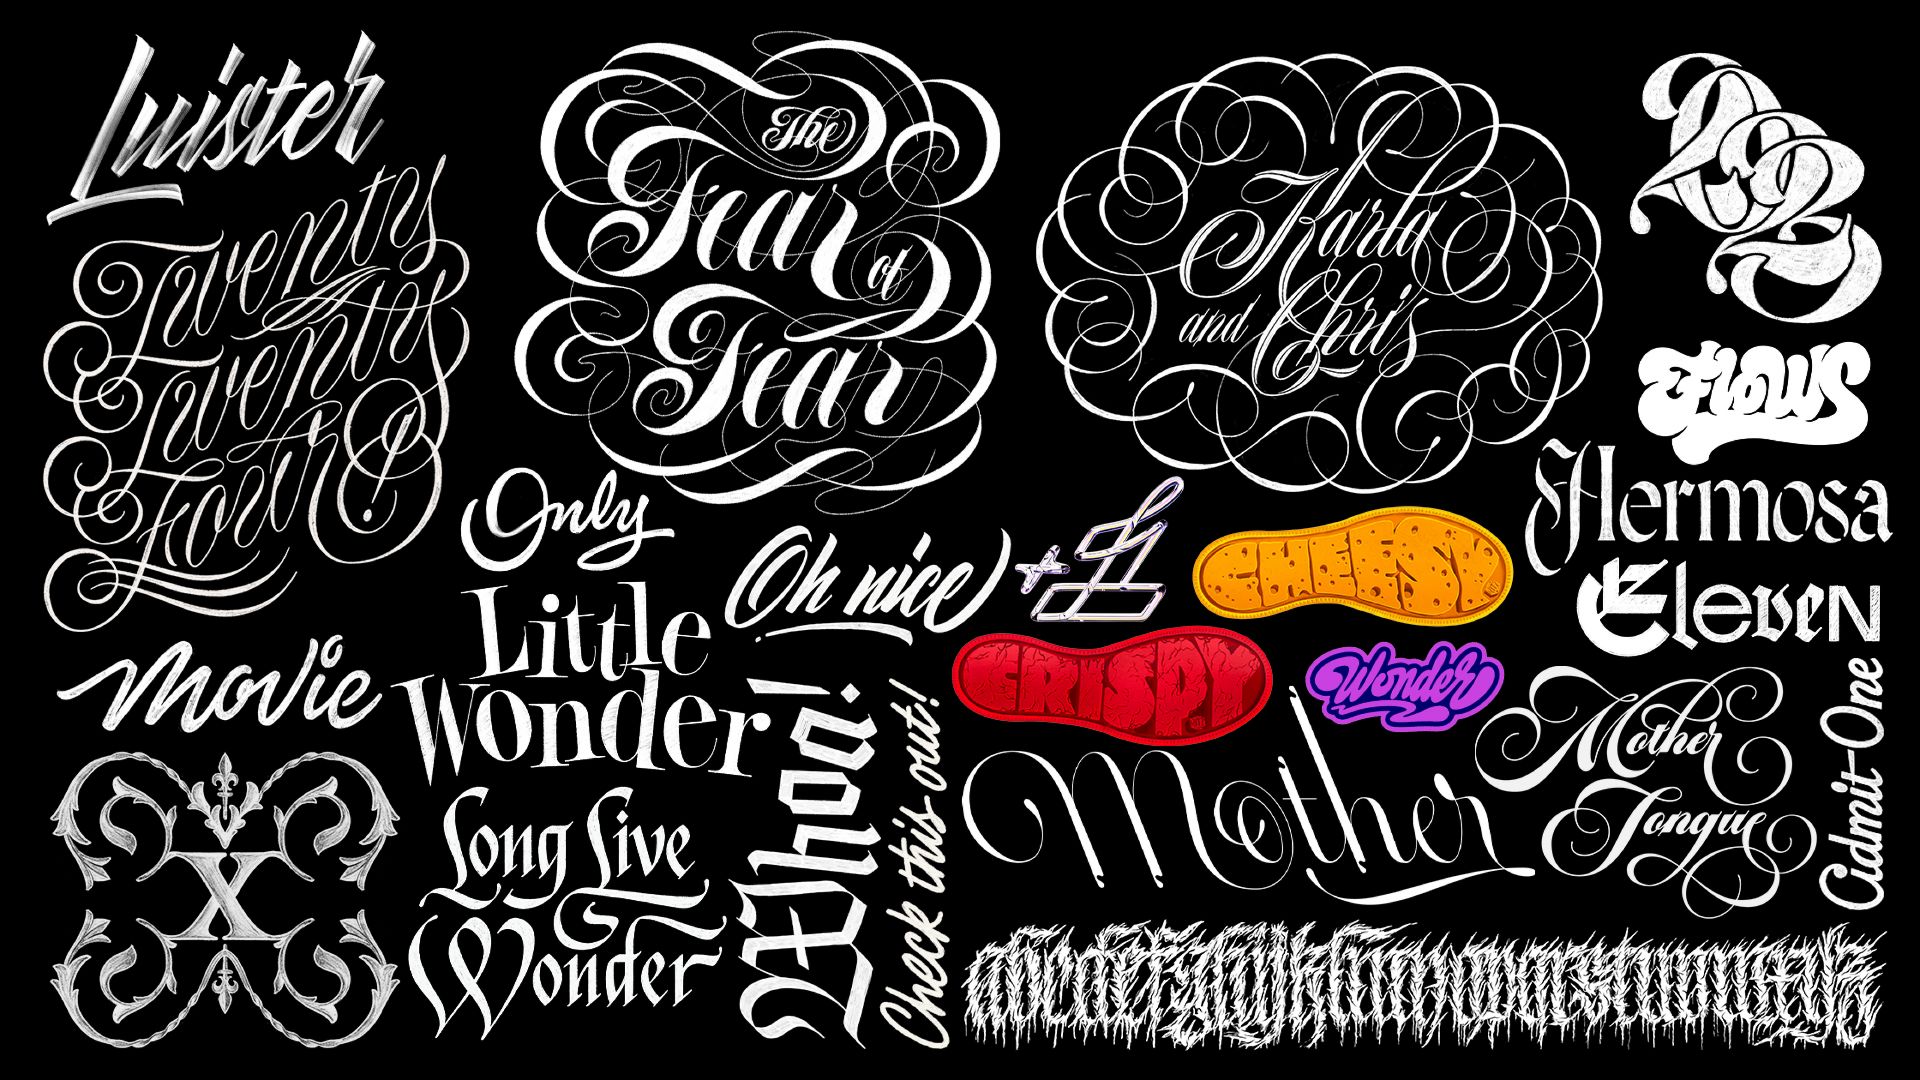 Luister
Twenty
Twenty
Four!
The
Fear
of
Fear
Karla
and Chris
Flows
Hermosa
Eleven
Only
Oh nice
+1
CHEESY
CRISPY
Wonder
Little
Wonder
Movie
X
Long Live
Wonder
Whoa!
Check this out!
Mother
Mother
Tongue
Admit One
abcdefghijklmnopqrstuvwxyz